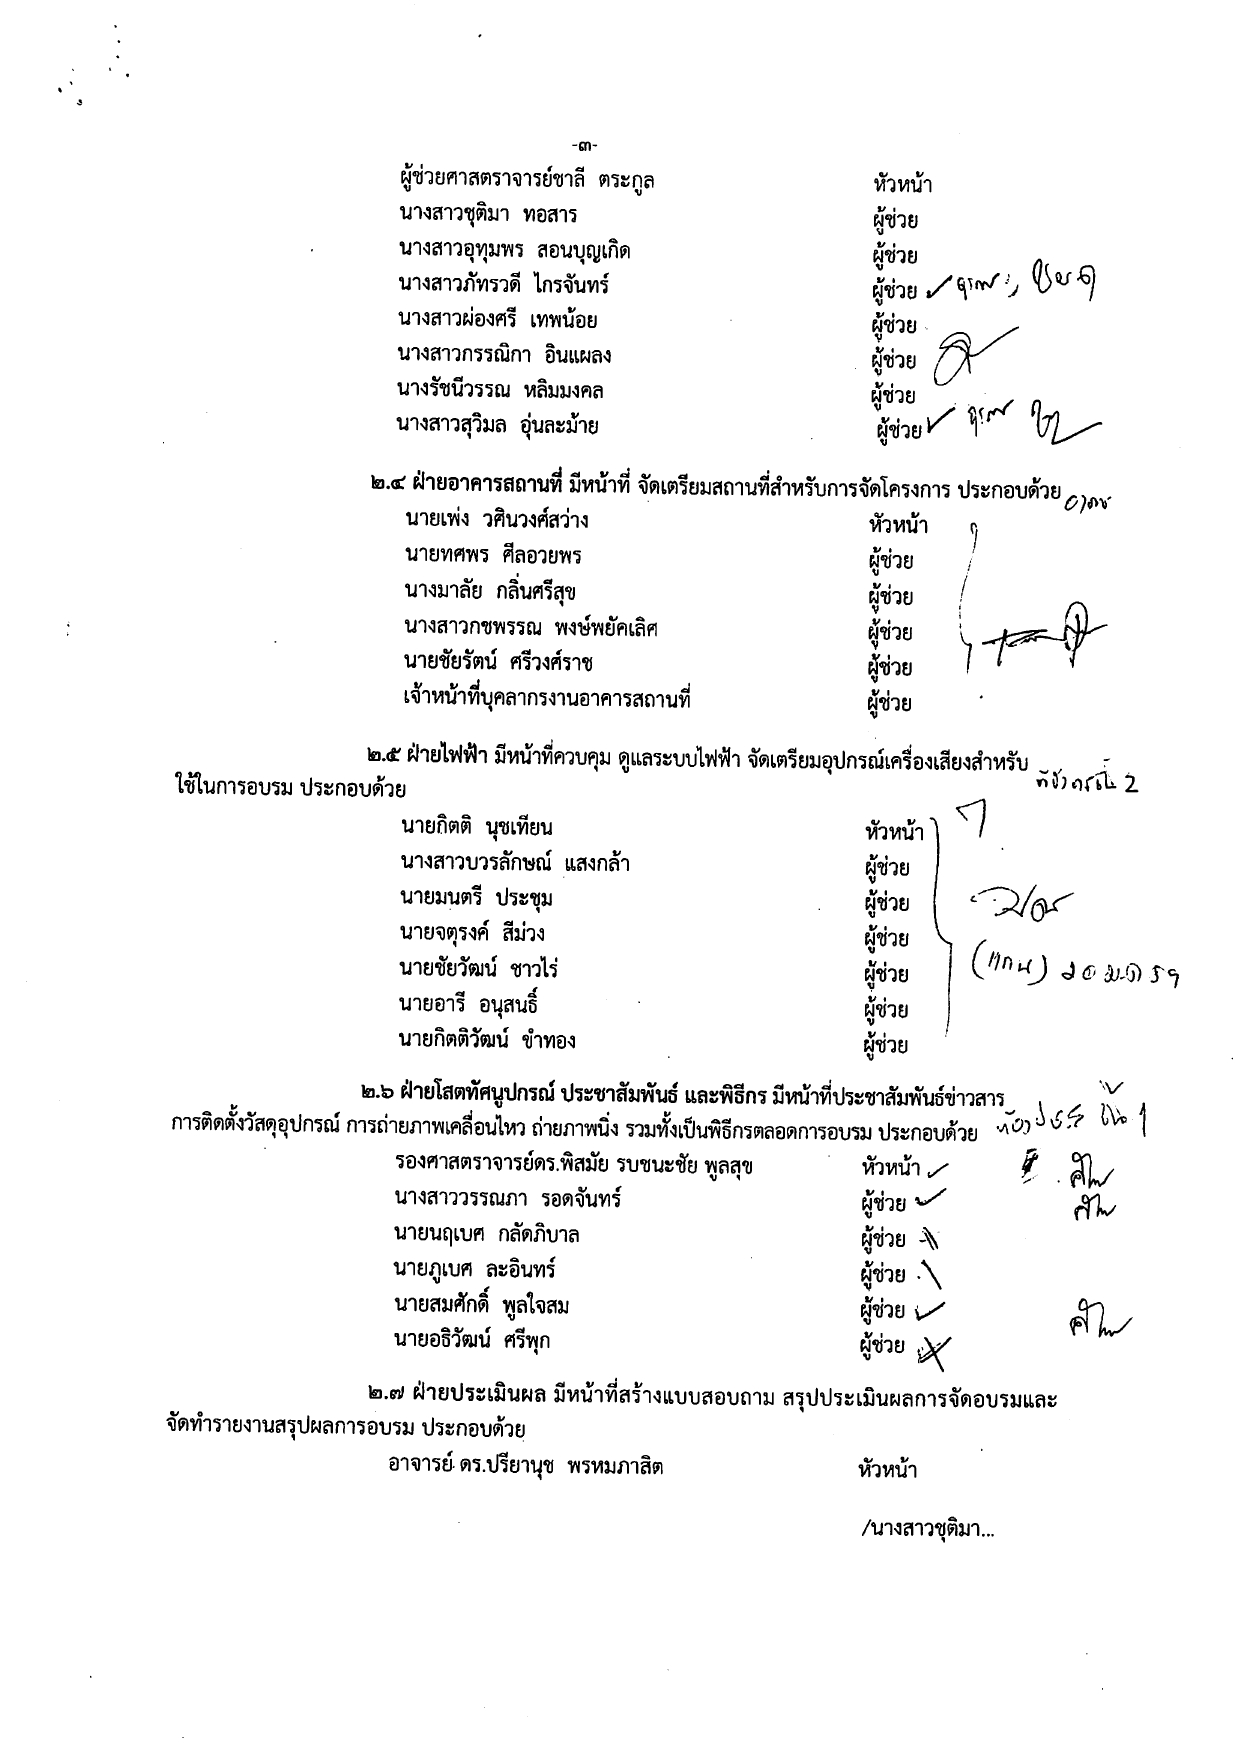 -๓-
ผู้ช่วยศาสตราจารย์ชาลี ตระกูล หัวหน้า
นางสาวชุติมา ทอสาร ผู้ช่วย
นางสาวอุทุมพร สอนบุญเกิด ผู้ช่วย
นางสาวภัทรวดี ไกรจันทร์ ผู้ช่วย
นางสาวผ่องศรี เทพน้อย ผู้ช่วย
นางสาวกรรณิกา อินแผลง ผู้ช่วย
นางรัชนีวรรณ หลิมมงคล ผู้ช่วย
นางสาวสุวิมล อุ่นละม้าย ผู้ช่วย
๒.๔ ฝ่ายอาคารสถานที่ มีหน้าที่ จัดเตรียมสถานที่สำหรับการจัดโครงการ ประกอบด้วย
นายเพ่ง วศินวงศ์สว่าง หัวหน้า
นายทศพร ศีลอวยพร ผู้ช่วย
นางมาลัย กลิ่นศรีสุข ผู้ช่วย
นางสาวกชพรรณ พงษ์พยัคเลิศ ผู้ช่วย
นายชัยรัตน์ ศรีวงศ์ราช ผู้ช่วย
เจ้าหน้าที่บุคลากรงานอาคารสถานที่ ผู้ช่วย
๒.๕ ฝ่ายไฟฟ้า มีหน้าที่ควบคุม ดูแลระบบไฟฟ้า จัดเตรียมอุปกรณ์เครื่องเสียงสำหรับ
ใช้ในการอบรม ประกอบด้วย
นายกิตติ นุชเทียน หัวหน้า
นางสาวบวรลักษณ์ แสงกล้า ผู้ช่วย
นายมนตรี ประชุม ผู้ช่วย
นายจตุรงค์ สีม่วง ผู้ช่วย
นายชัยวัฒน์ ชาวไร่ ผู้ช่วย
นายอารี อนุสนธิ์ ผู้ช่วย
นายกิตติวัฒน์ ขำทอง ผู้ช่วย
๒.๖ ฝ่ายโสตทัศนูปกรณ์ ประชาสัมพันธ์ และพิธีกร มีหน้าที่ประชาสัมพันธ์ข่าวสาร
การติดตั้งวัสดุอุปกรณ์ การถ่ายภาพเคลื่อนไหว ถ่ายภาพนิ่ง รวมทั้งเป็นพิธีกรตลอดการอบรม ประกอบด้วย
รองศาสตราจารย์ดร.พิสมัย รบชนะชัย พูลสุข หัวหน้า
นางสาววรรณภา รอดจันทร์ ผู้ช่วย
นายนฤเบศ กลัดภิบาล ผู้ช่วย
นายภูเบศ ละอินทร์ ผู้ช่วย
นายสมศักดิ์ พูลใจสม ผู้ช่วย
นายอธิวัฒน์ ศรีพุก ผู้ช่วย
๒.๗ ฝ่ายประเมินผล มีหน้าที่สร้างแบบสอบถาม สรุปประเมินผลการจัดอบรมและ
จัดทำรายงานสรุปผลการอบรม ประกอบด้วย
อาจารย์ ดร.ปรียานุช พรหมภาสิต หัวหน้า
/นางสาวชุติมา...